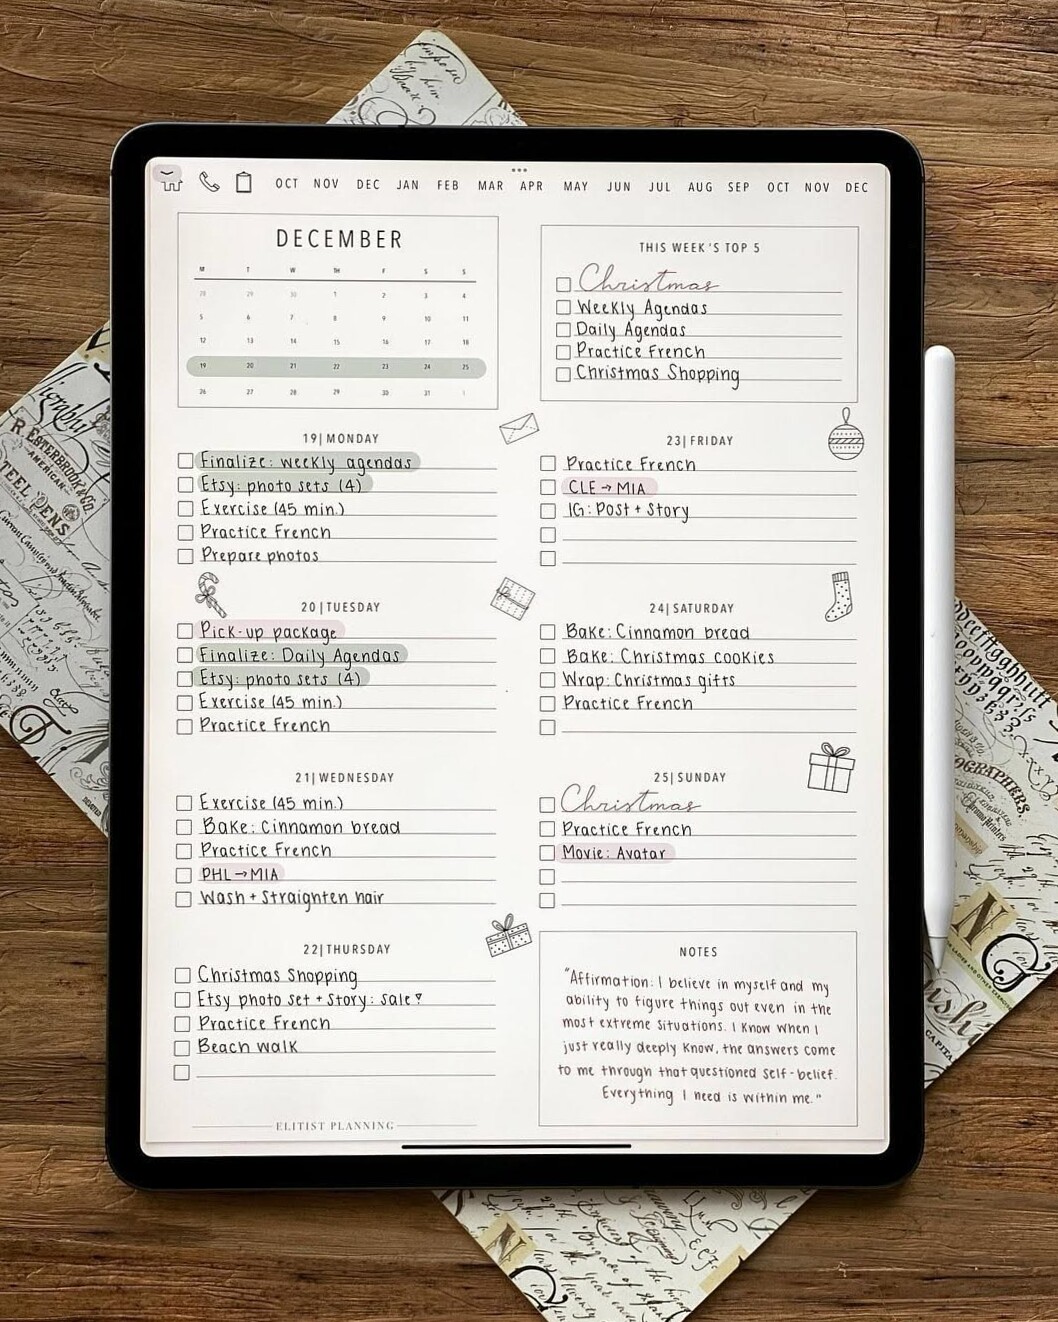 OCT NOV DEC JAN FEB MAR APR MAY JUN JUL AUG SEP OCT NOV DEC
DECEMBER
M T W TH F S S
28 29 30 1 2 3 4
5 6 7 8 9 10 11
12 13 14 15 16 17 18
19 20 21 22 23 24 25
26 27 28 29 30 31 1
THIS WEEK'S TOP 5
Christmas
Weekly Agendas
Daily Agendas
Practice French
Christmas Shopping
19|MONDAY
Finalize: weekly agendas
Etsy: photo sets (4)
Exercise (45 min.)
Practice French
Prepare photos
20|TUESDAY
Pick-up package
Finalize: Daily Agendas
Etsy: photo sets (4)
Exercise (45 min.)
Practice French
21|WEDNESDAY
Exercise (45 min.)
Bake: Cinnamon bread
Practice French
PHL→MIA
Wash + Straighten hair
22|THURSDAY
Christmas Shopping
Etsy photo set + Story: Sale?
Practice French
Beach walk
23|FRIDAY
Practice French
CLE→MIA
IG: Post + Story
24|SATURDAY
Bake: Cinnamon bread
Bake: Christmas cookies
Wrap: Christmas gifts
Practice French
25|SUNDAY
Christmas
Practice French
Movie: Avatar
NOTES
"Affirmation: I believe in myself and my
ability to figure things out even in the
most extreme situations. I know when I
just really deeply know, the answers come
to me through that questioned self-belief.
Everything I need is within me."
ELITIST PLANNING
R. ESTERBROOK & CO.
AMERICAN
STEEL PENS